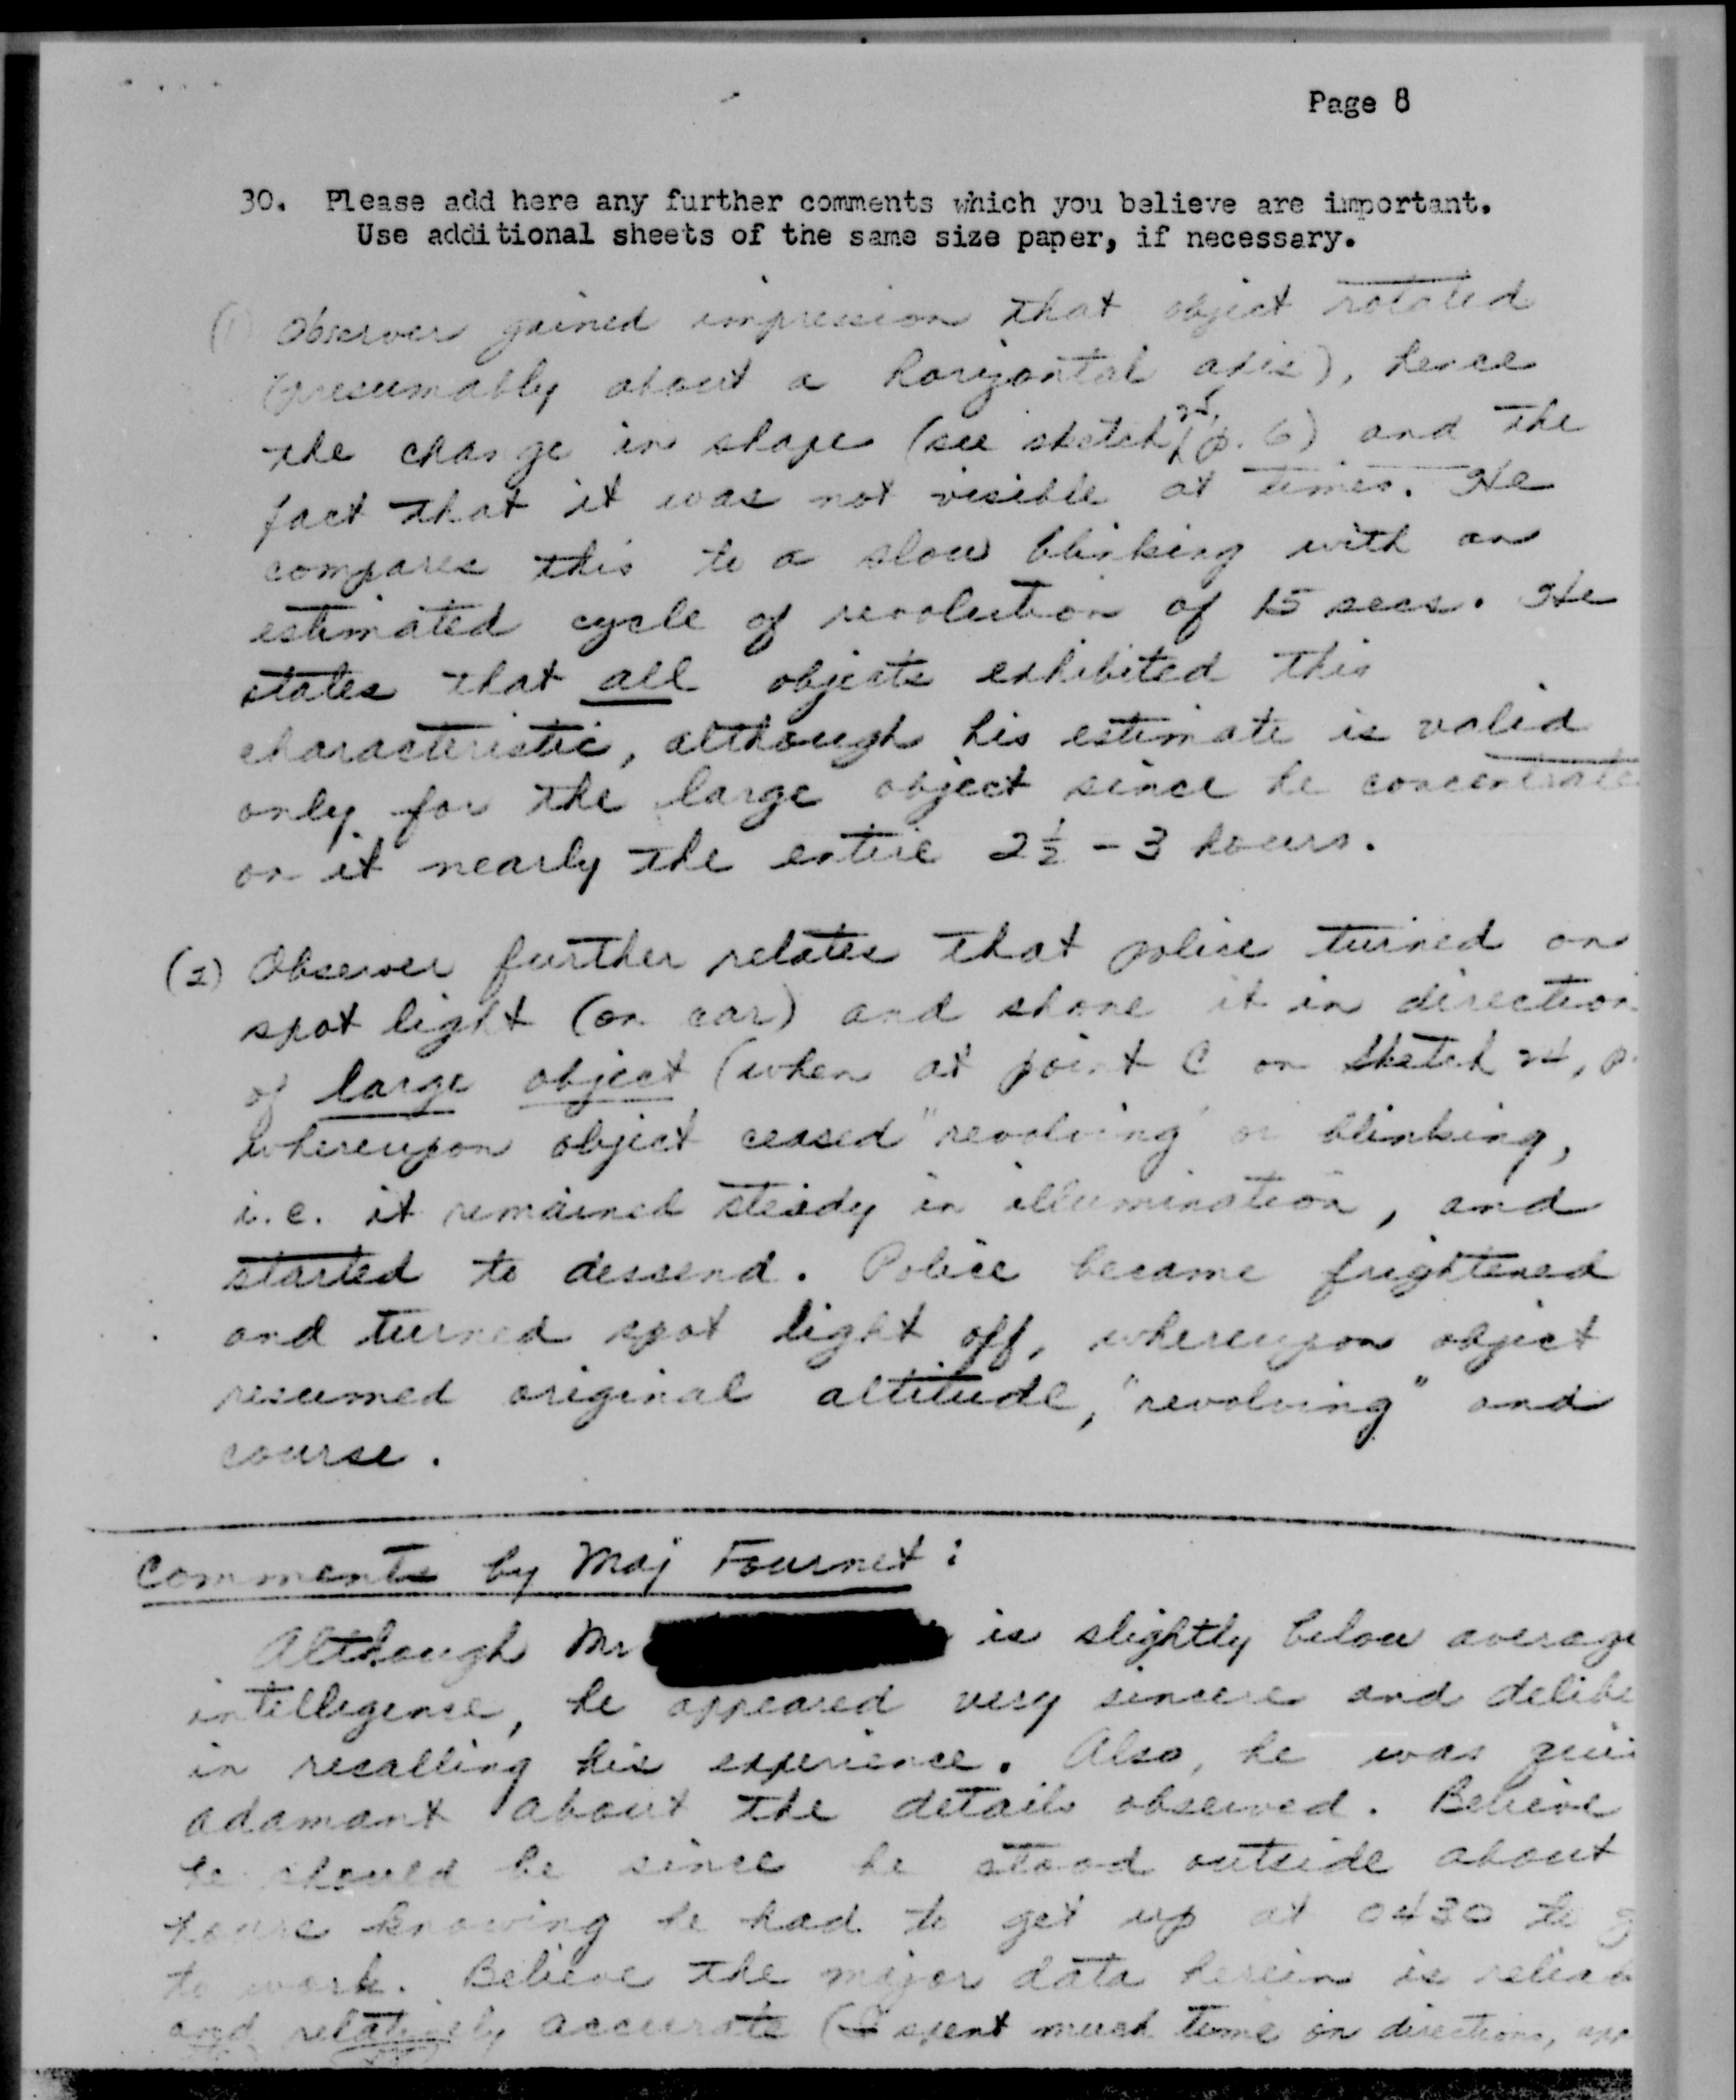 Page 8
30. Please add here any further comments which you believe are important.
Use additional sheets of the same size paper, if necessary.
(1) Observer gained impression that object rotated
(presumably about a horizontal axis), hence
the change in shape (see sketch p. 6) and the
fact that it was not visible at times. He
compares this to a slow blinking with an
estimated cycle of revolution of 15 secs. He
states that all objects exhibited this
characteristic, although his estimate is valid
only for the large object since he concentrate
on it nearly the entire 2½ - 3 hours.
(2) Observer further relates that police turned on
spot light (on car) and shone it in direction
of large object (when at point C on sketch 24, p.
whereupon object ceased "revolving" or blinking,
i.e. it remained steady in illumination, and
started to dessend. Police became frightened
and turned spot light off, whereupon object
resumed original altitude, "revolving" and
course.
Comments by Maj Fournet:
Although Mr is slightly below average
intellegence, he appeared very sincere and delibe
in recalling his experience. Also, he was qui
adamant about the details observed. Believe
he should be since he stood outside about
hours knowing he had to get up at 0430 to g
to work. Believe the major data herein is reliab
and relatively accurate (I spent much time on directions, app